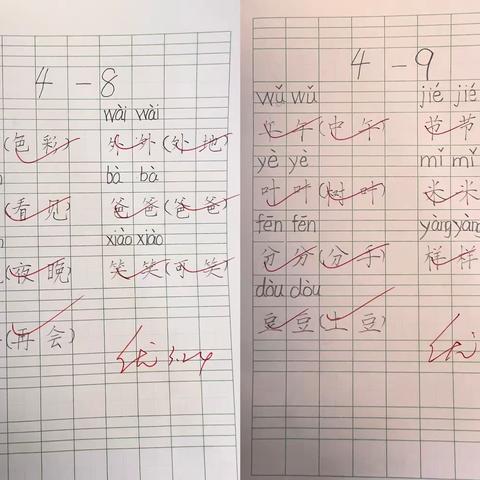 4-8
wài wài
(色彩) 外外(外地)
bà bà
(看见) 爸爸(爸爸)
xiào xiào
(夜晚) 笑笑(可笑)
(再会)
优 3.24
4-9
wǔ wǔ jié jié
午午(中午) 节节
yè yè mǐ mǐ
叶叶(树叶) 米米
fēn fēn yàng yàng
分分(分手) 样样
dòu dòu
豆豆(土豆)
优